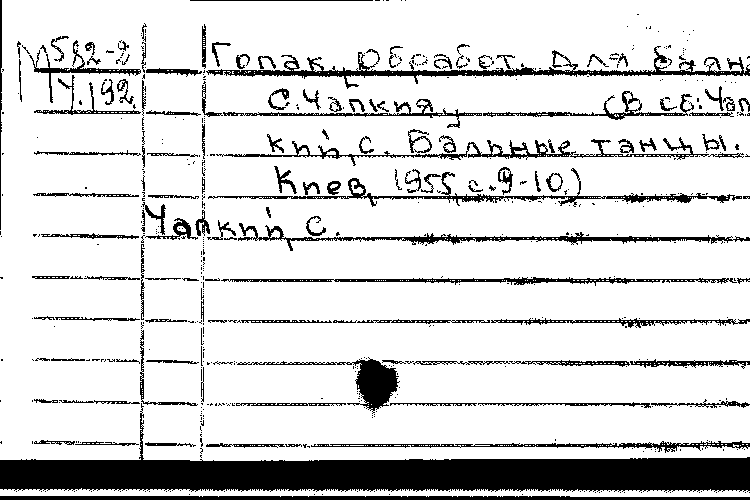 М582-2 Гопак. Обработ. для баяна
IV.192 С. Чапкия. (В сб: Чап
кий, с. Бальные танцы.
Киев, 1955, с. 9-10)
Чапкий, С.